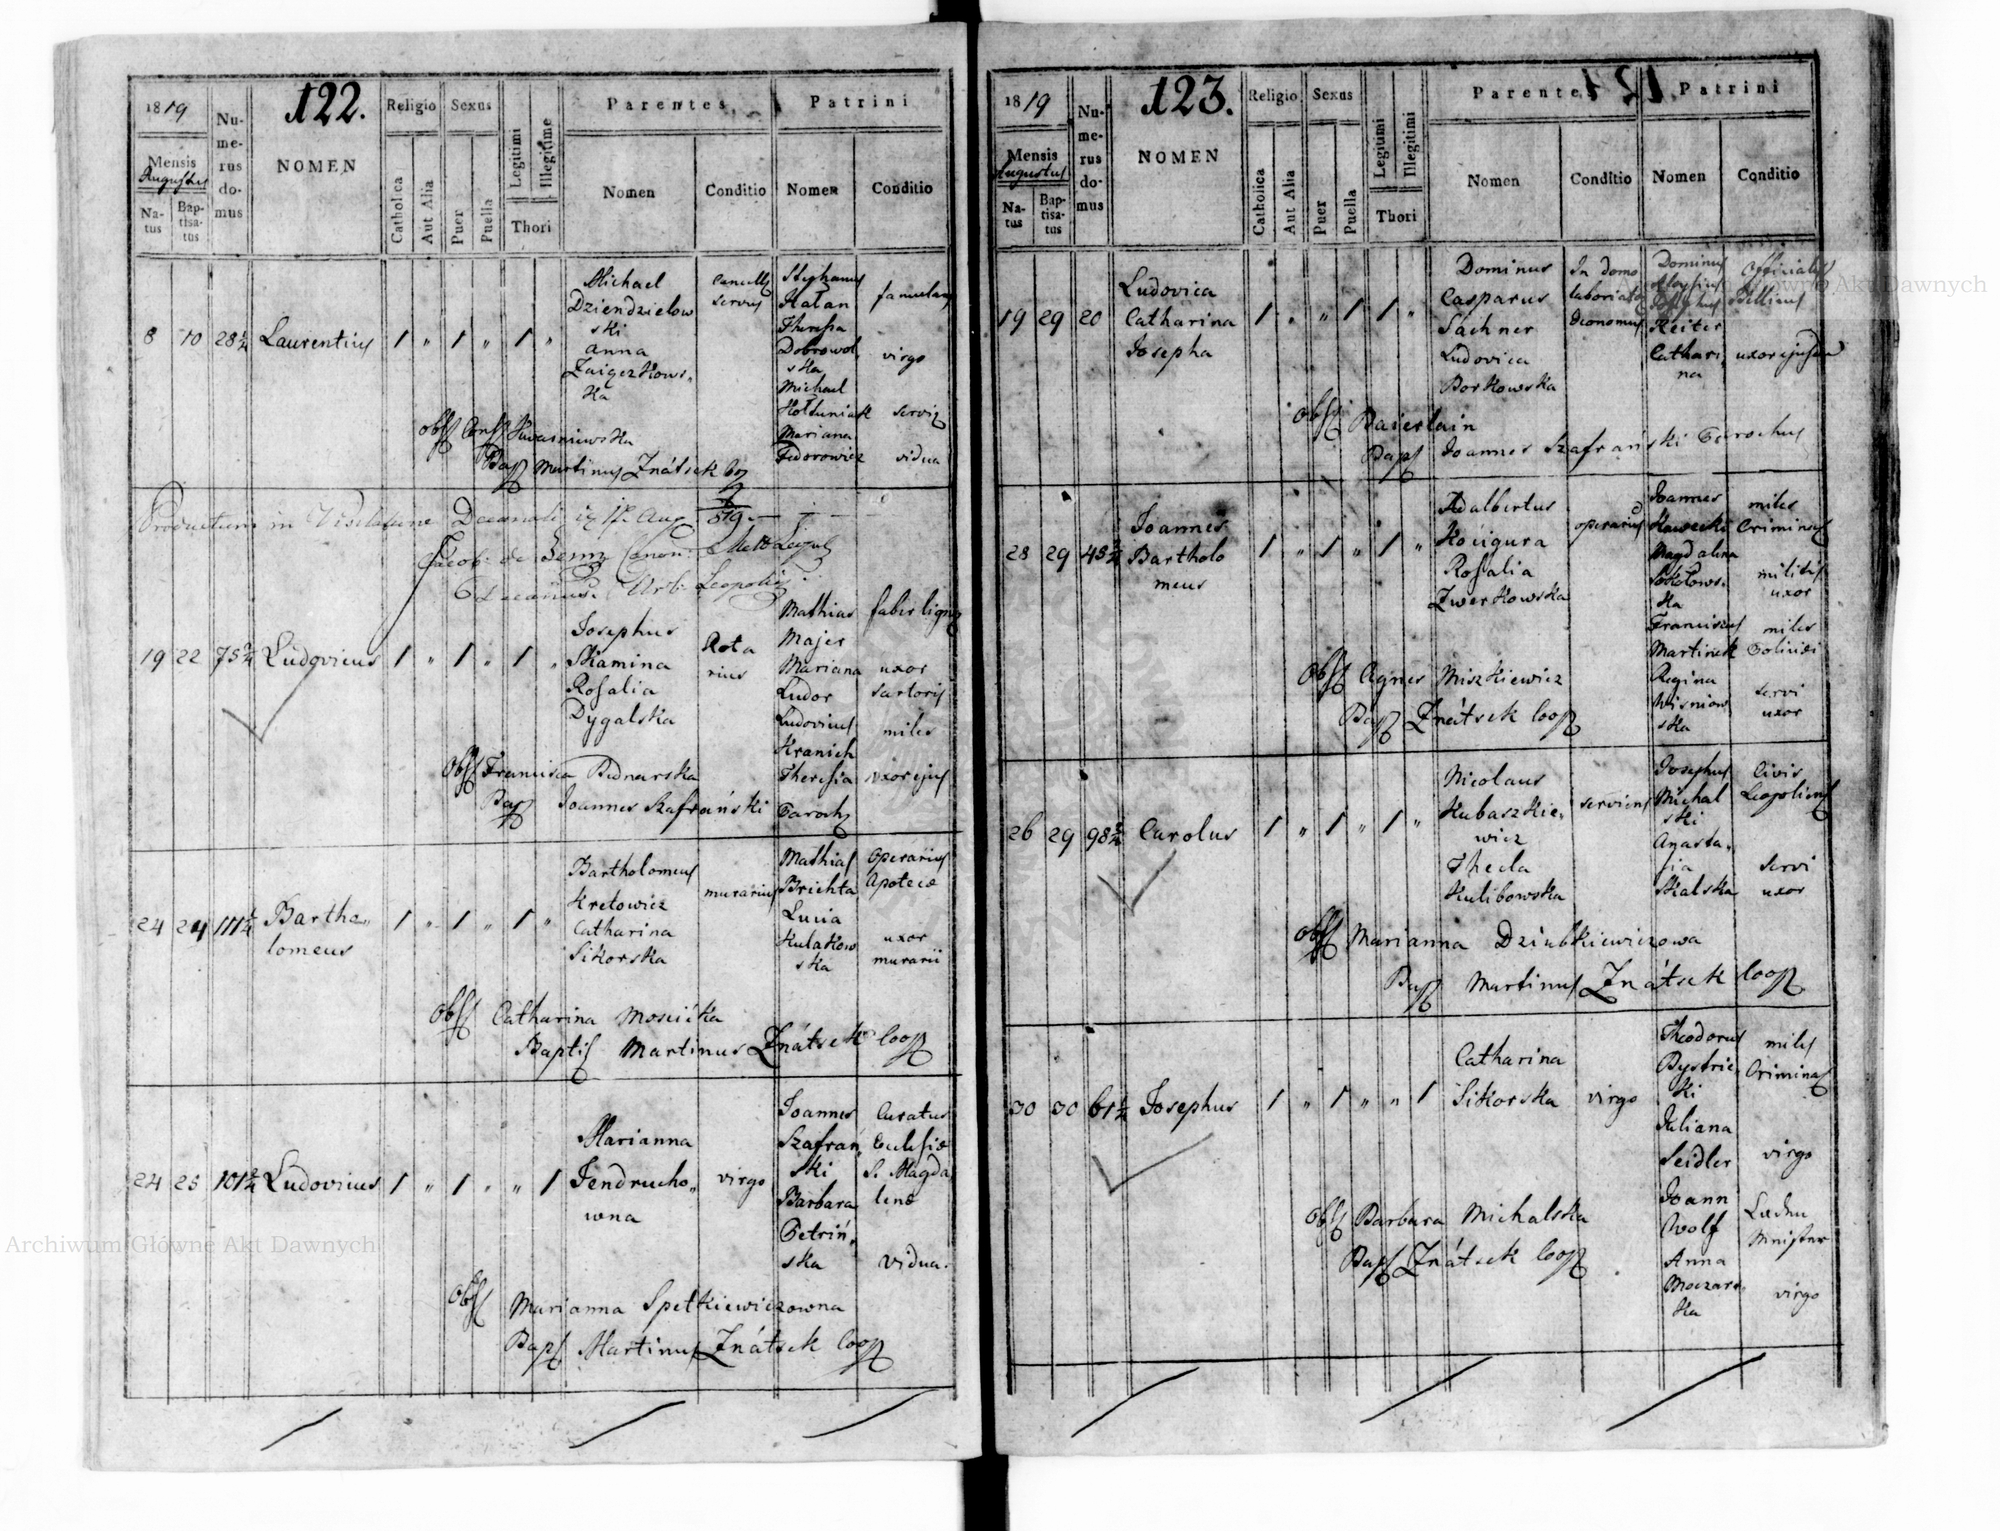 1819
Nu-
me-
rus
do-
mus
122.
NOMEN
Religio
Sexus
Catholica
Aut Alia
Puer
Puella
Legitimi
Illegitime
Thori
Parentes
Nomen
Conditio
Patrini
Nomen
Conditio
Mensis
Augustus
Na-
tus
Bap-
tisa-
tus
8 10 28 2/4 Laurentius 1 " 1 " 1 "
Michael
Dziendzielow
ski
Anna
Zaigezkows-
ka
servus
Stephanus
Hatan
Theresia
Dobrowol
ska
Michael
Hołduniak
Mariana
Fedorowicz
famulans
virgo
vidua
Obst Kwasniewska
Bap Martinus Znátsek Coop
Productum in Visitatione Decanali 819
Jacob: de
Decanus Leopolien
19 22 75 2/4 Ludovicus 1 " 1 " 1 "
Josephus
Kamina
Rosalia
Dygalska
Rota
rius
Mathias
Majer
Mariana
Ludor
Ludovicus
Kranich
Theresia
faber lignar
uxor
sartoris
miles
uxor ejus
Obst Francisca Bednarska
Bap Joannes Szafrański Paroch
24 24 111 2/4 Bartho-
lomeus
1 " 1 " 1 "
Bartholomeus
Kretowicz
Catharina
Sikorska
murarius
Mathias
Brichta
Lucia
Kulakow
ska
Operarius
Apotecæ
uxor
murarii
Obst Catharina Mosciska
Baptis Martinus Znátsek Coop
24 25 101 2/4 Ludovicus 1 " 1 " " 1
Marianna
Jendrucho-
wna
virgo
Joannes
Szafrań-
ski
Barbara
Petriń-
ska
Curatus
Ecclesiæ
S. Magda
lenæ
vidua.
Obst Marianna Spetkiewiczowna
Bap Martinus Znátsek Coop
1819
Nu-
me-
rus
do-
mus
123.
NOMEN
Religio
Sexus
Catholica
Aut Alia
Puer
Puella
Legitimi
Illegitimi
Thori
Parentes
Nomen
Conditio
Patrini
Nomen
Conditio
Mensis
Augustus
Na-
tus
Bap-
tisa-
tus
19 29 20
Ludovica
Catharina
Josepha
1 " " 1 1 "
Dominus
Casparus
Sachner
Ludovica
Borkowska
In domo
laboriato
Oeconomus
Dominus
Aloysius
Reiter
Cathari-
na
Officialis
Bellicus
uxor ejusdem
Obst Baierlain
Bap Joannes Szafrański Parochus
28 29 48 2/4
Joannes
Bartholo
meus
1 " 1 " 1 "
Adalbertus
Koúgura
Rosalia
Zwerkowska
operarius
Joannes
Kawecki
Magdalina
Sokołows-
ka
Franciscus
Martinek
Regina
Wisniow
ska
miles
Criminal
militis
uxor
miles
Politici
servi
uxor
Obst Agnes Miszkiewicz
Bap Znátsek Coop
26 29 98 2/4 Carolus 1 " 1 " 1 "
Nicolaus
Kubaszkie-
wicz
Thecla
Kulibowska
serviens
Josephus
Michal
ski
Anasta-
sia
Skalska
Civis
Leopoliens
servi
uxor
Obst Marianna Dziubkiewiczowa
Bap Martinus Znátsek Coop
30 30 61 2/4 Josephus 1 " 1 " " 1
Catharina
Sikorska
virgo
Theodorus
Bystric-
ki
Juliana
Seidler
Joann
Wolf
Anna
Moczars-
ka
miles
Criminal
virgo
virgo
Obst Barbara Michalska
Bap Znátsek Coop
Archiwum Główne Akt Dawnych
Archiwum Główne Akt Dawnych